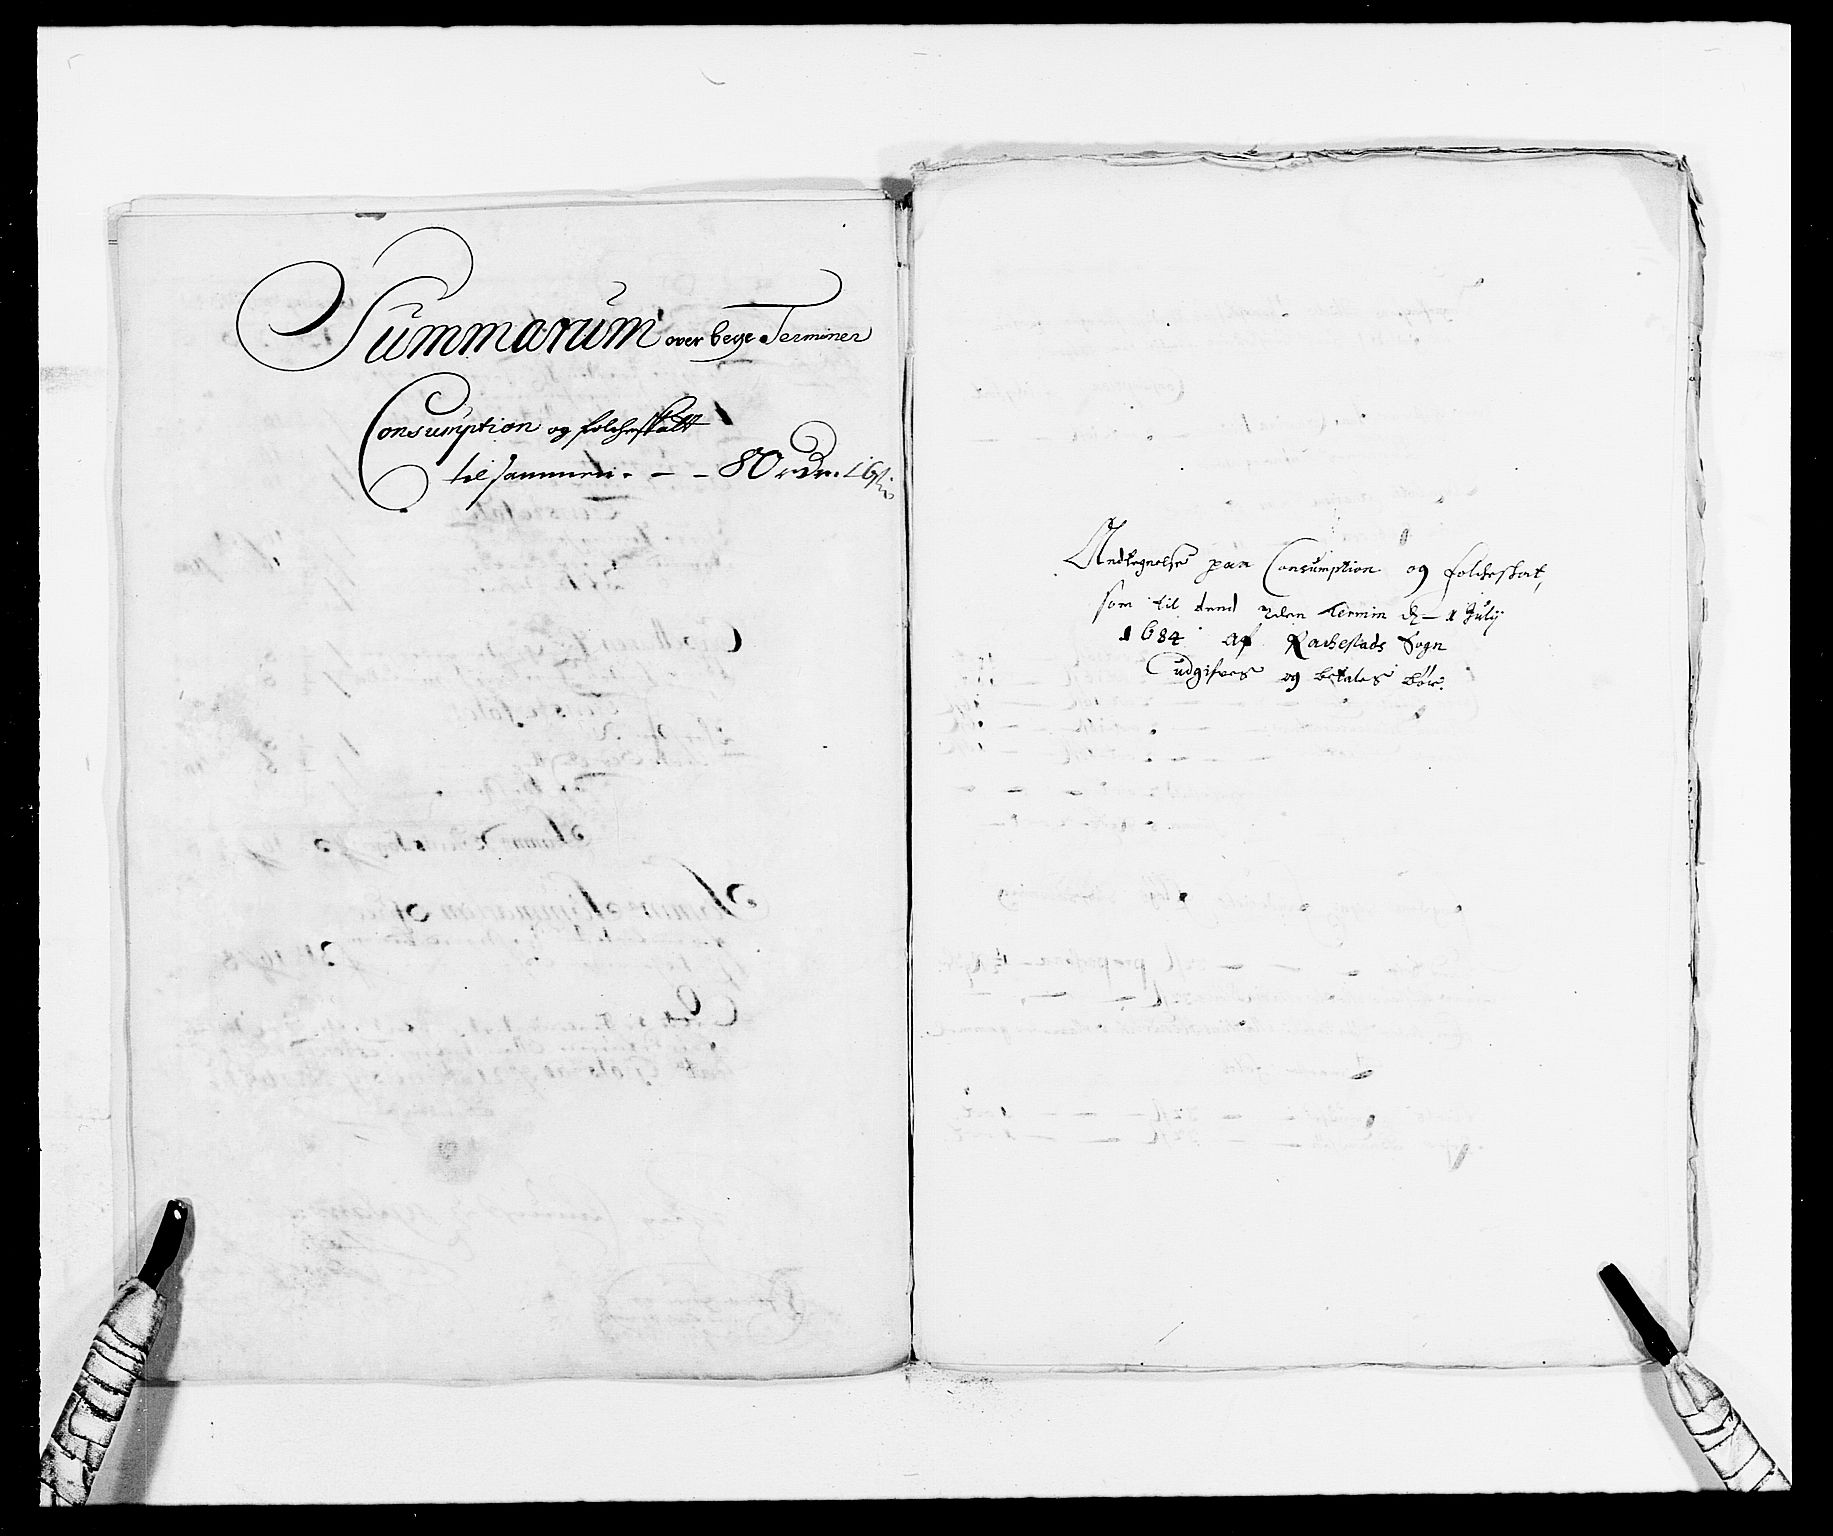 Summarum over bege Terminer
Consumption og folcheskatt
til sammen - - 80 rdr. 16 sk
Andtegnelse paa Consumption og folcheskat,
som til dend 2den Termin d. 1 Julij
1684 af Rachestads Sogn
udgifves og betales bör.